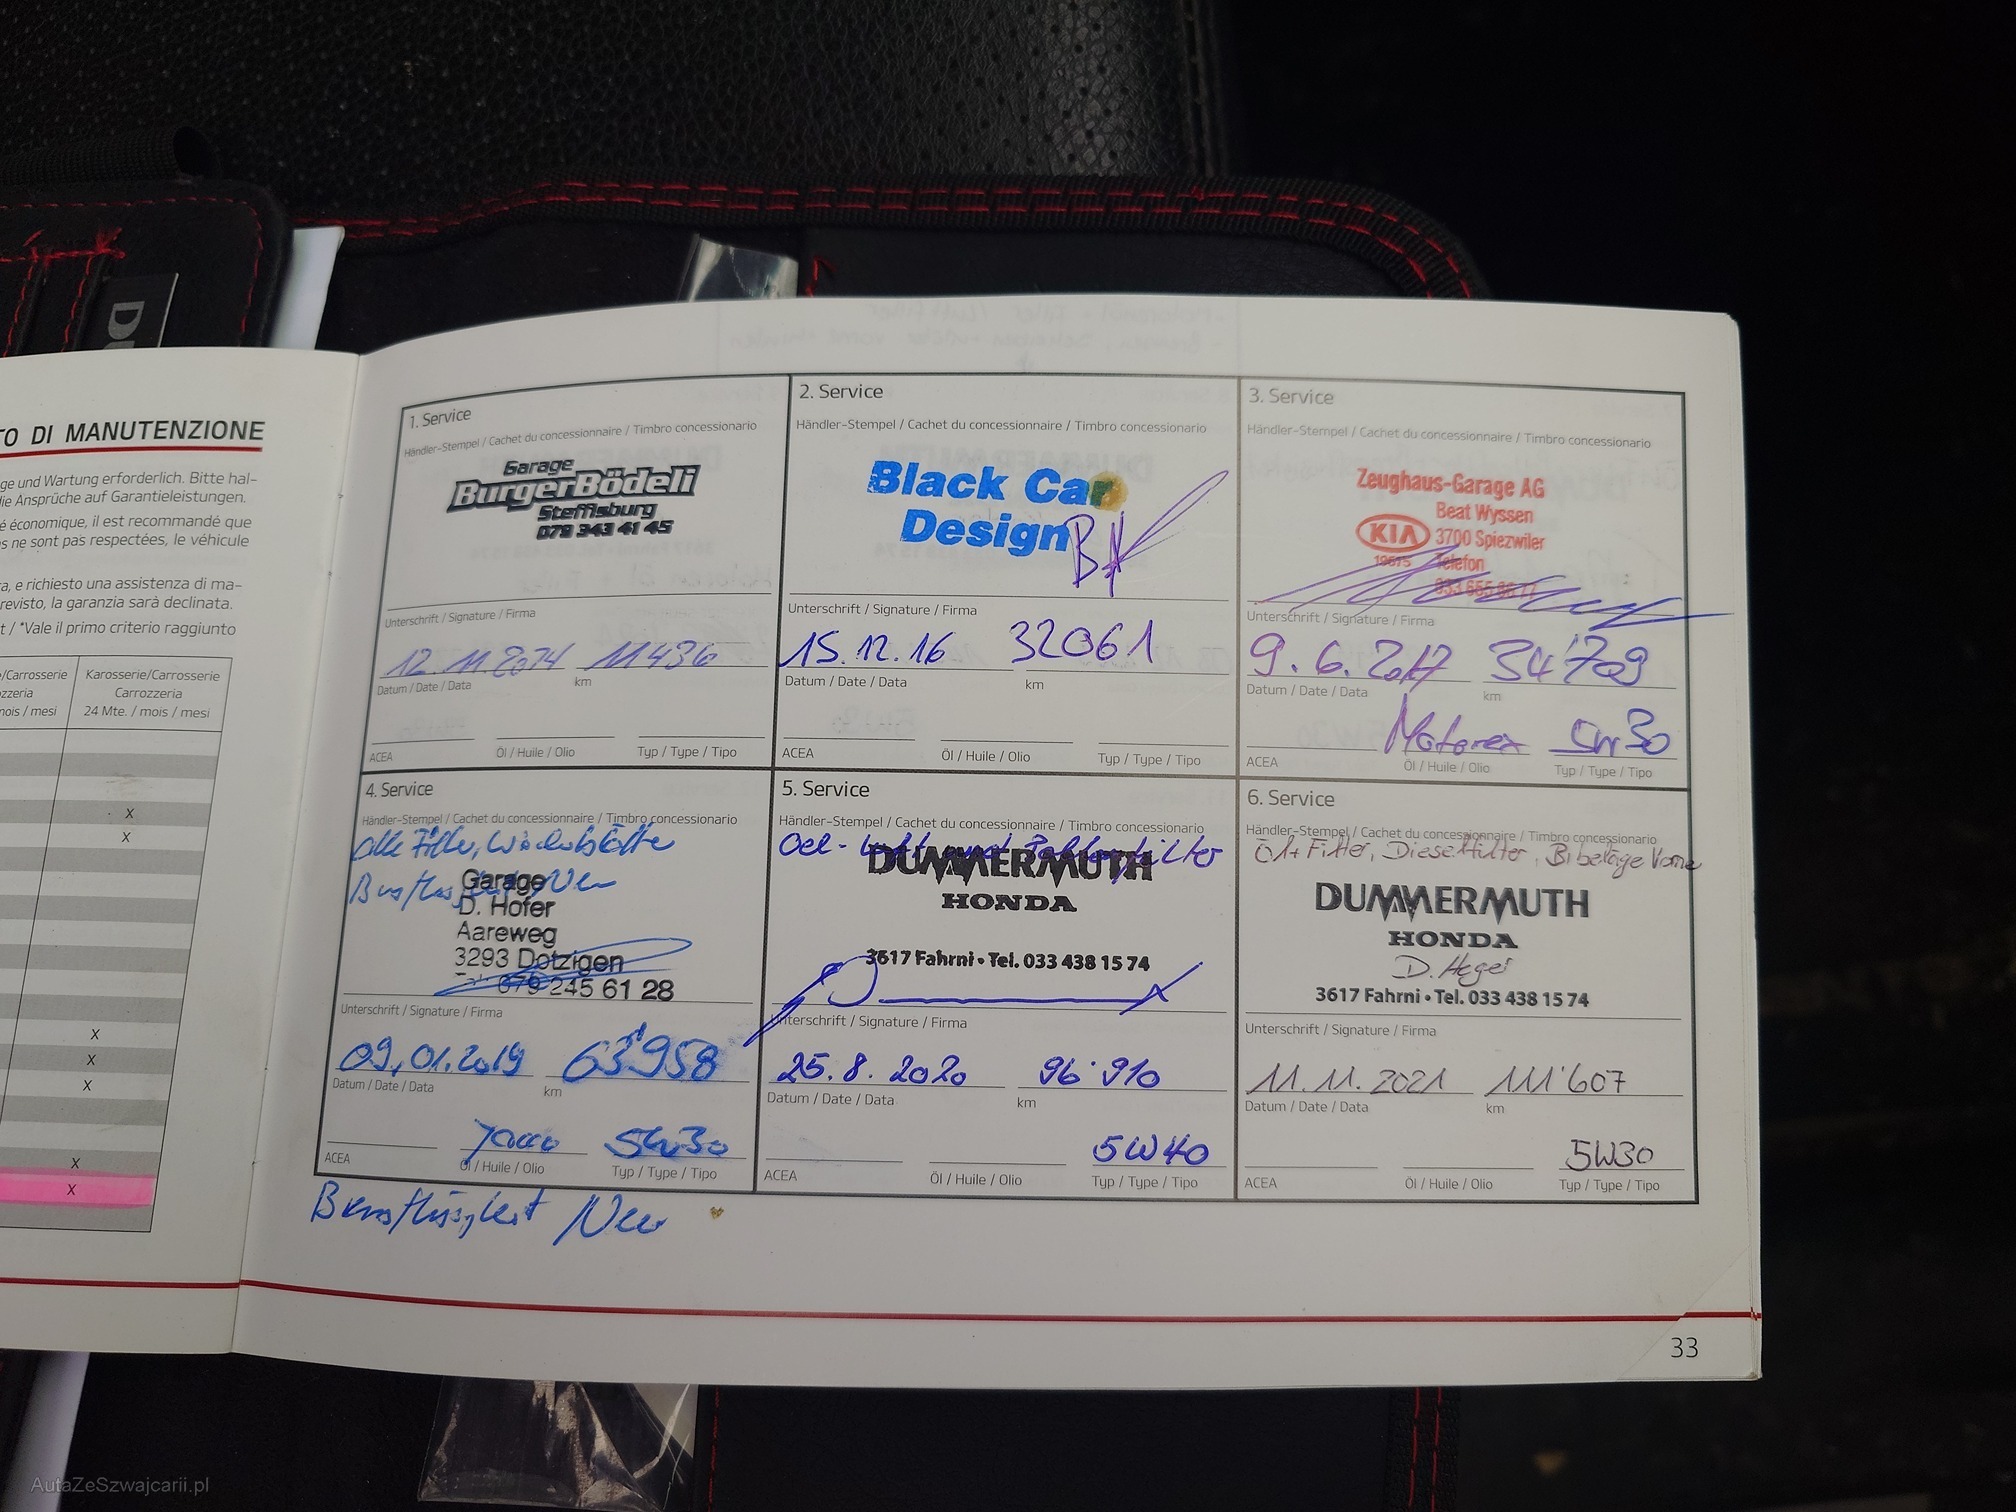 TO DI MANUTENZIONE
ge und Wartung erforderlich. Bitte hal-
die Ansprüche auf Garantieleistungen.
é économique, il est recommandé que
s ne sont pas respectées, le véhicule
ra, e richiesto una assistenza di ma-
revisto, la garanzia sarà declinata.
t / *Vale il primo criterio raggiunto
/Carrosserie
zzeria
mois / mesi
Karosserie/Carrosserie
Carrozzeria
24 Mte. / mois / mesi
x
x
x
x
x
x
x
1. Service
Händler-Stempel / Cachet du concessionnaire / Timbro concessionario
Garage
BurgerBödeli
Steffisburg
079 343 41 45
Unterschrift / Signature / Firma
12.11.2014 11436
Datum / Date / Data km
ACEA Öl / Huile / Olio Typ / Type / Tipo
2. Service
Händler-Stempel / Cachet du concessionnaire / Timbro concessionario
Black Car
Design
Unterschrift / Signature / Firma
15.12.16 32061
Datum / Date / Data km
ACEA Öl / Huile / Olio Typ / Type / Tipo
3. Service
Händler-Stempel / Cachet du concessionnaire / Timbro concessionario
Zeughaus-Garage AG
Beat Wyssen
KIA 3700 Spiezwiler
Telefon
Unterschrift / Signature / Firma
9.6.2017 34'709
Datum / Date / Data km
Motorex 5W30
ACEA Öl / Huile / Olio Typ / Type / Tipo
4. Service
Händler-Stempel / Cachet du concessionnaire / Timbro concessionario
alle Filter,
Neu
Garage
D. Hofer
Aareweg
3293 Dotzigen
079 245 61 28
Unterschrift / Signature / Firma
09.01.2019 63'958
Datum / Date / Data km
5W30
ACEA Öl / Huile / Olio Typ / Type / Tipo
Bremsflüssigkeit Neu
5. Service
Händler-Stempel / Cachet du concessionnaire / Timbro concessionario
Oel- Luft und Pollenfilter
DUMMERMUTH
HONDA
3617 Fahrni • Tel. 033 438 15 74
Unterschrift / Signature / Firma
25.8.2020 96'910
Datum / Date / Data km
5W40
ACEA Öl / Huile / Olio Typ / Type / Tipo
6. Service
Händler-Stempel / Cachet du concessionnaire / Timbro concessionario
Öl+Filter, Dieselfilter, Bibeläge Vorne
DUMMERMUTH
HONDA
3617 Fahrni • Tel. 033 438 15 74
Unterschrift / Signature / Firma
11.11.2021 111'607
Datum / Date / Data km
5W30
ACEA Öl / Huile / Olio Typ / Type / Tipo
33
AutaZeSzwajcarii.pl